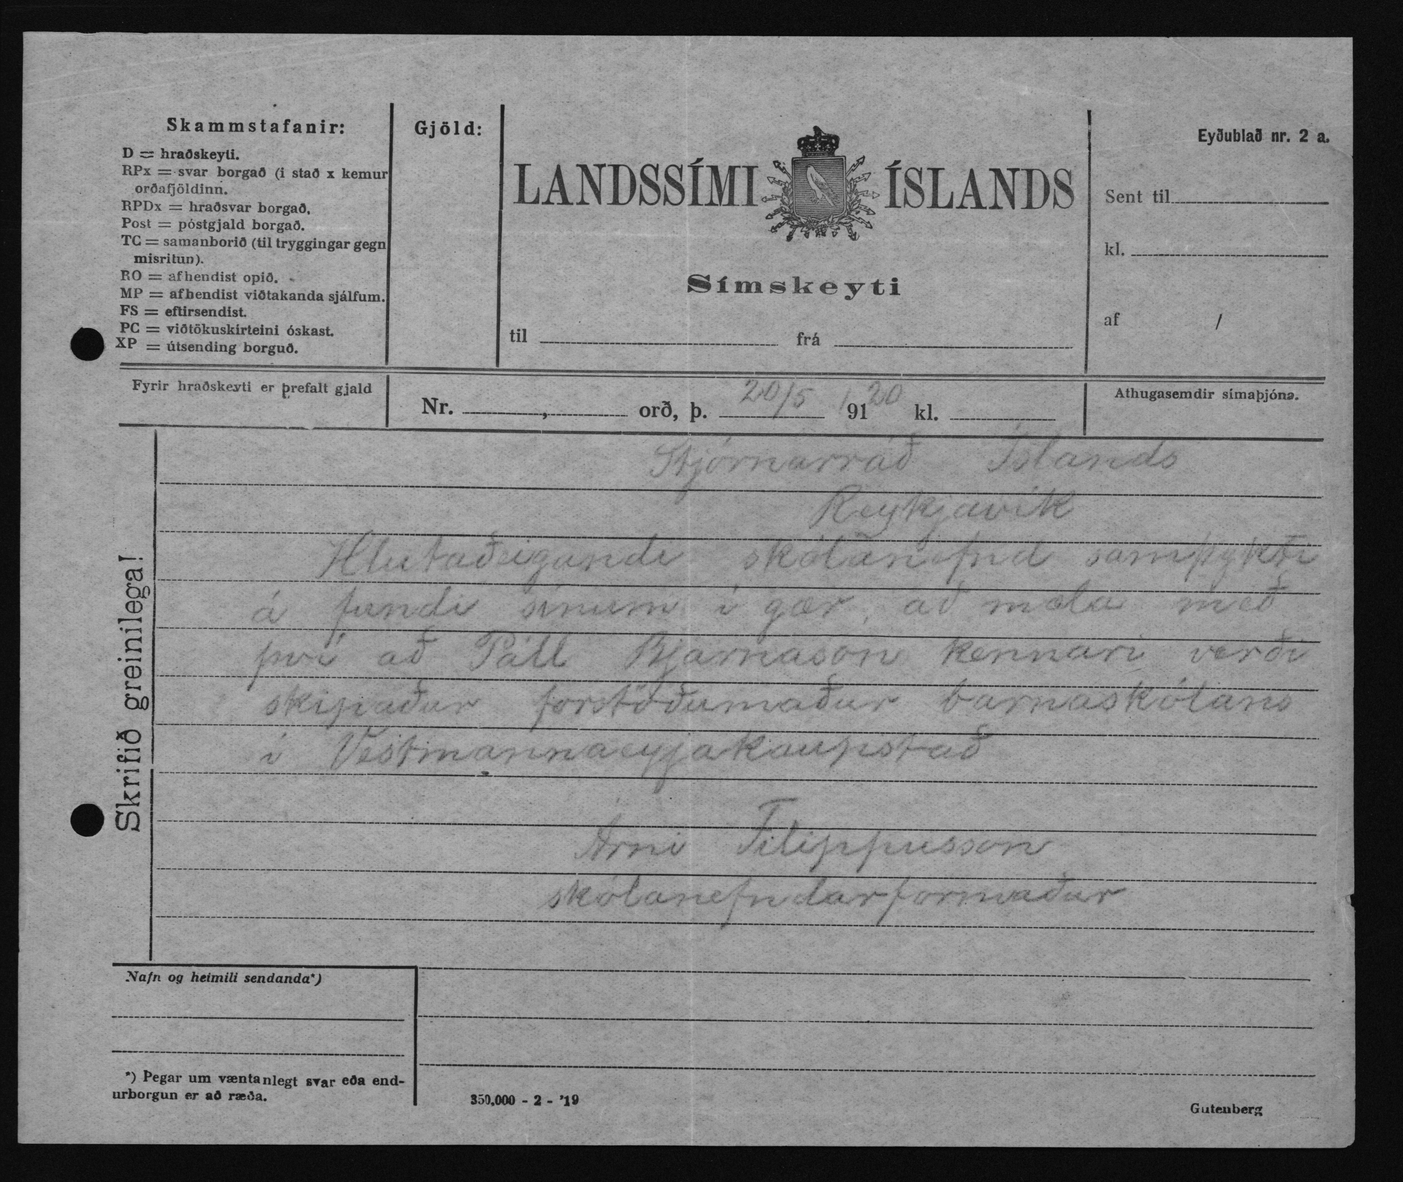 Skammstafanir:
D = hraðskeyti.
RPx = svar borgað (í stað x kemur
orðafjöldinn.
RPDx = hraðsvar borgað.
Post = póstgjald borgað.
TC = samanborið (til tryggingar gegn
misritun).
RO = afhendist opið.
MP = afhendist viðtakanda sjálfum.
FS = eftirsendist.
PC = viðtökuskírteini óskast.
XP = útsending borguð.
Gjöld:
LANDSSÍMI ÍSLANDS
Símskeyti
til frá
Eyðublað nr. 2 a.
Sent til
kl.
af /
Fyrir hraðskeyti er þrefalt gjald
Nr. , orð, þ. 20/5 1920 kl.
Athugasemdir símaþjóns.
Skrifið greinilega!
Stjórnarráð Íslands
Reykjavík
Hlutaðeigandi skólanefnd samþykti
á fundi sínum í gær, að mæla með
því að Páll Bjarnason kennari verði
skipaður forstöðumaður barnaskólans
í Vestmannaeyjakaupstað
Árni Filippusson
skólanefndarformaður
Nafn og heimili sendanda*)
*) Þegar um væntanlegt svar eða end-
urborgun er að ræða.
350,000 - 2 - '19
Gutenberg